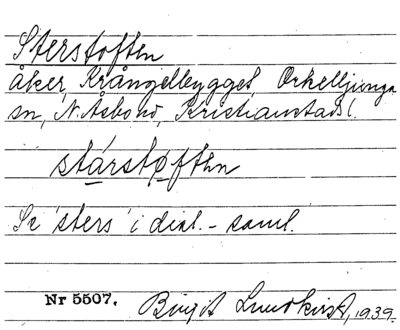 Sterstoften
åker, Krångelbygget, Örkelljunga
sn, N. Åsbo hd, Kristianstads l.
stárstøften
Se 'sters' i dial.-saml.
Nr 5507.
Birgit Lundkvist, 1939.